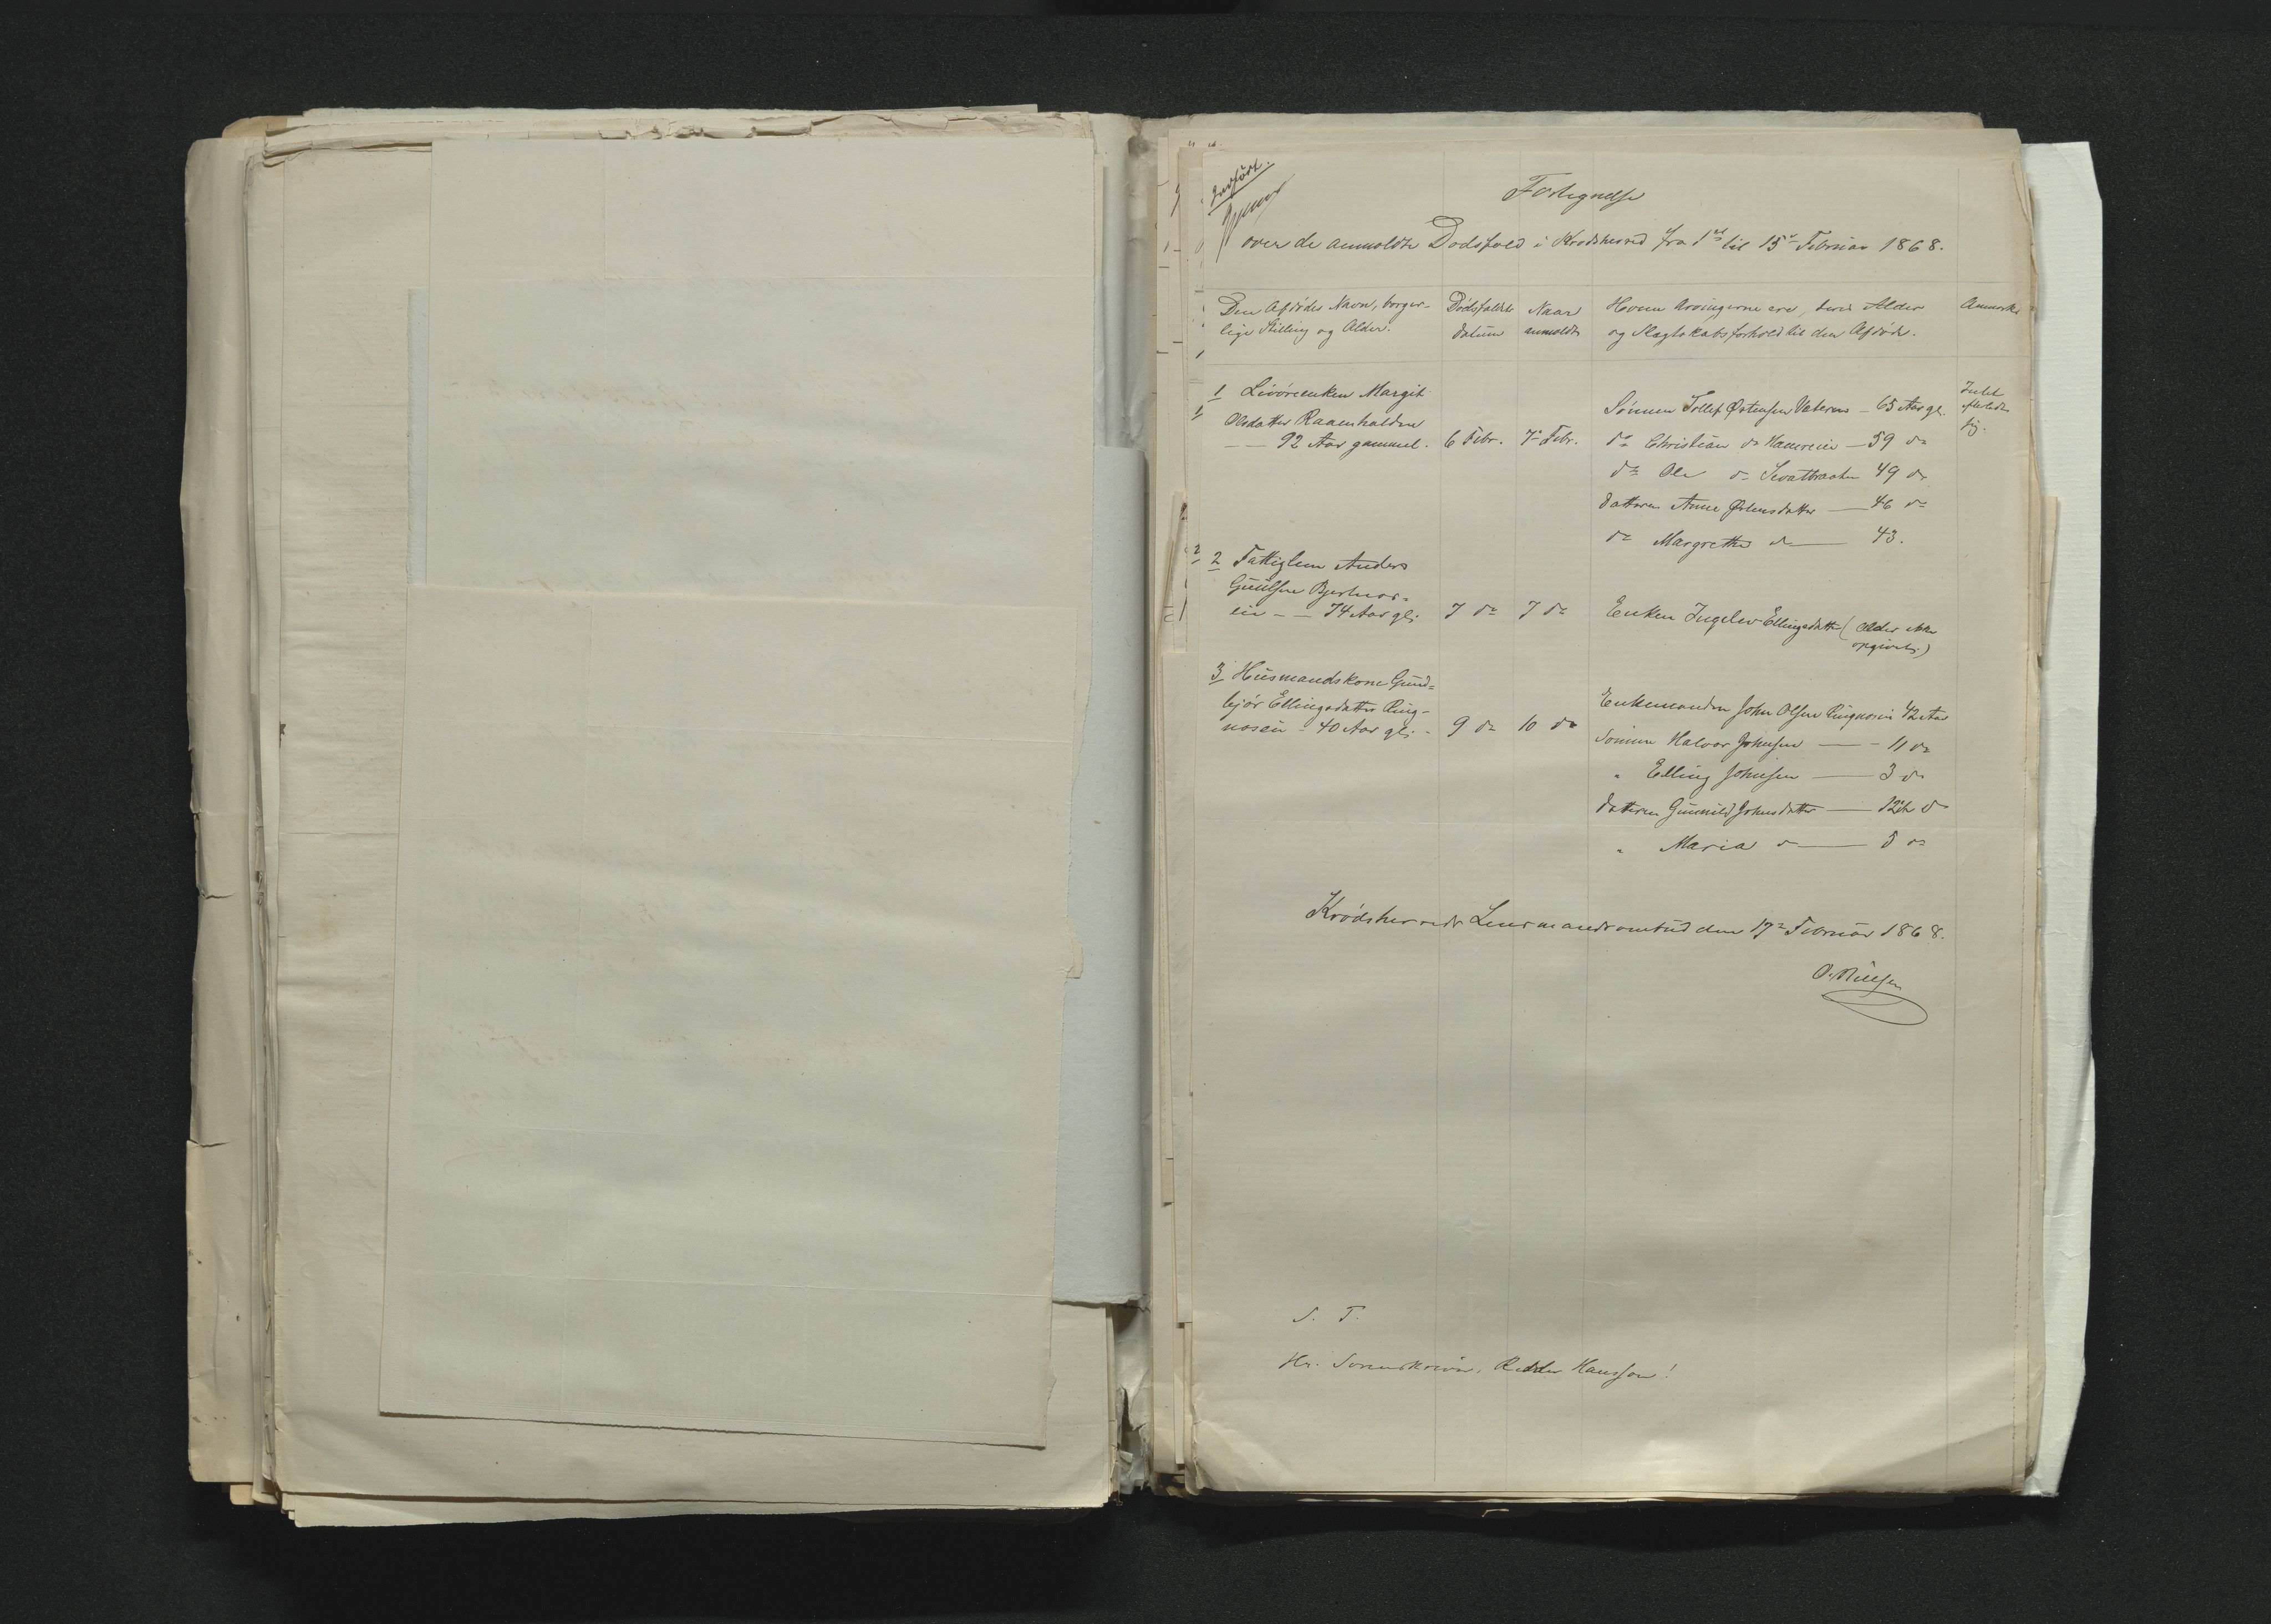 Indført.
Fortegnelse
over de anmeldte Dødsfald i Krødsherred fra 1ste til 15de Februar 1868.
Den Afdødes Navn, borger-
lige Stilling og Alder.
Dødsfaldets
Datum
Naar
anmeldte
Hvem Arvingerne ere, deres Alder
og Slægtskabsforhold til den Afdøde.
Anmærkn
1 Livøreenken Margit
1
Olsdatter Raaenhalden
— 92 Aar gammel. 6 Febr. 7de Febr.
Sønnen Tollef Østensen — 65 Aar gl.
do Christian do — 59 do
do Ole do 49 do
Datteren Anne Østensdatter — 46 do
do Margrethe do — 43.
Intet
efterladt
sig.
2 2 Fattiglem Anders
Gulbsen
eie — — 74 Aar gl. 7 do 7 do Enken Ingelev Ellingsdatter (Alder ikke
opgivet.)
3 Husmandskone Gund-
bjør Ellingsdatter Ring-
noseie - 40 Aar gl. - 9 do 10 do
Enkemanden John Olsen Ringnoseie 42 Aar
Sønnen Halvor Johnsen — - 11 do
" Elling Johnsen — 3 do
Datteren Gunnild Johnsdatter — 12½ do
" Maria do — 5 do
Krødsherreds Lensmandsombud den 17de Februar 1868.
O. Nielsen
S. T.
Hr. Sorenskriver, Ridder Hansson!